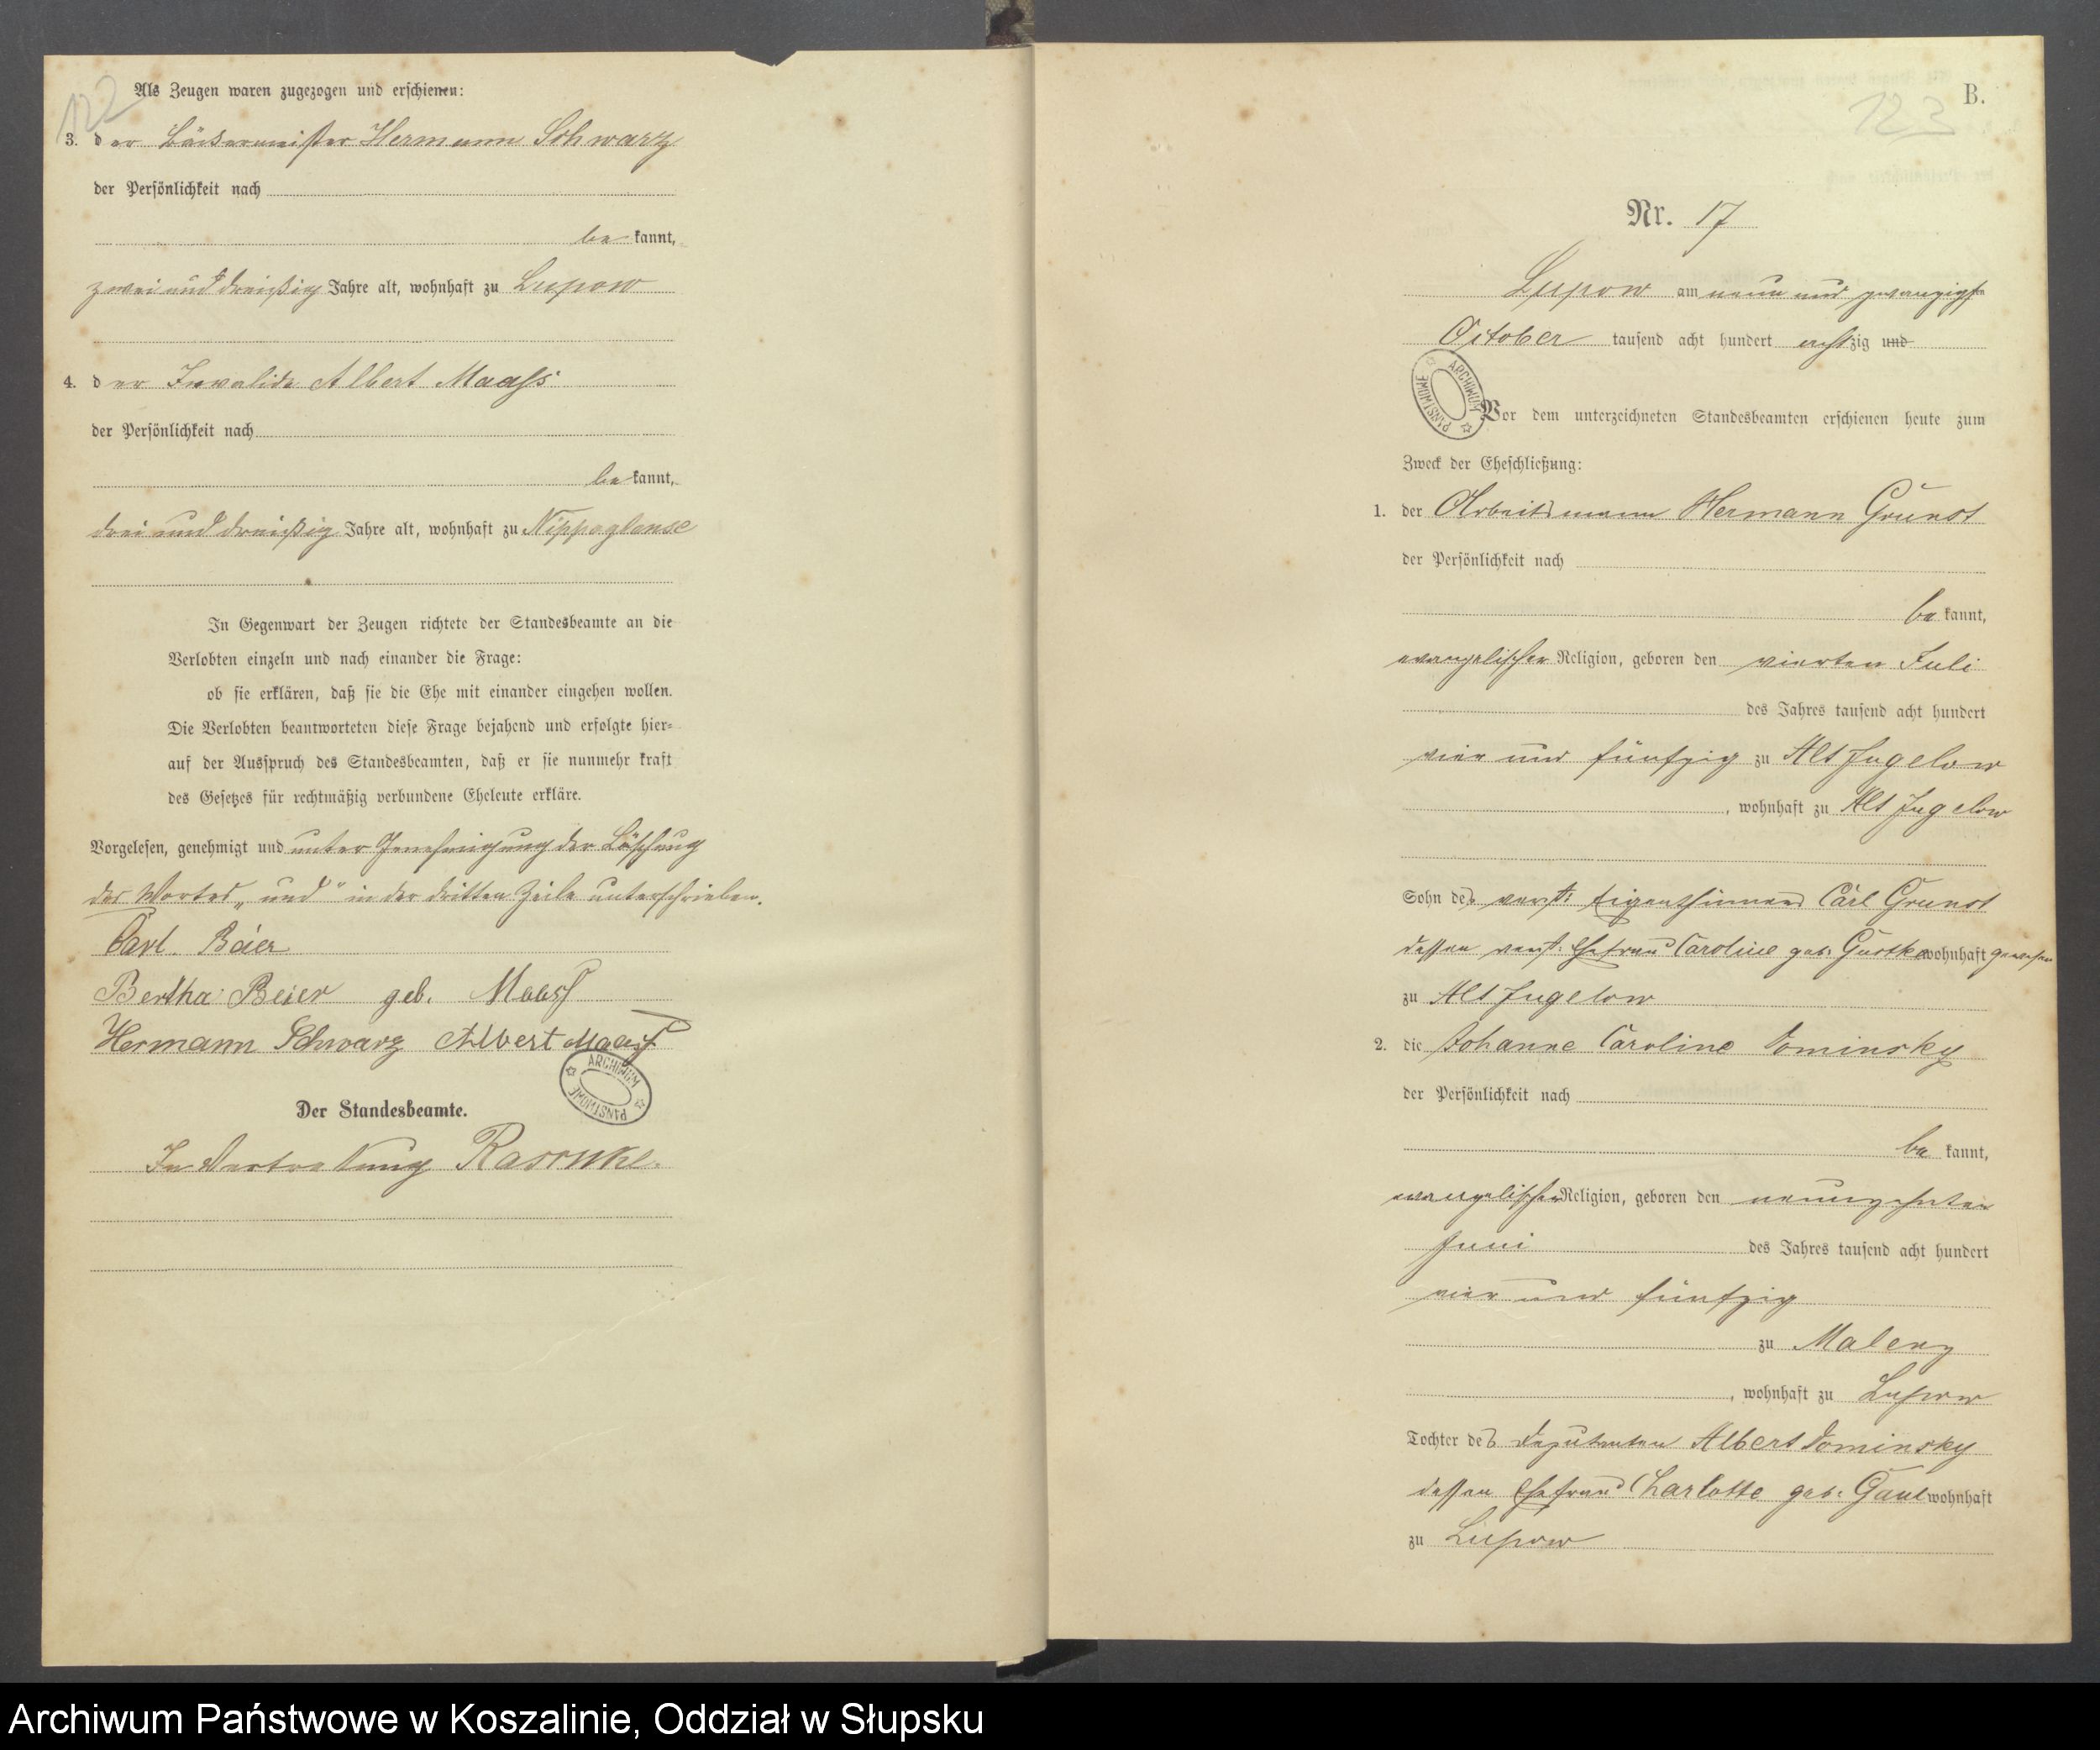 122
Als Zeugen waren zugezogen und erschienen:
3. der Bäckermeister Hermann Schwarz
der Persönlichkeit nach
be kannt,
zwei und dreißig Jahre alt, wohnhaft zu Lupow
4. der Invalide Albert Maass
der Persönlichkeit nach
be kannt,
drei und dreißig Jahre alt, wohnhaft zu Nippoglense
In Gegenwart der Zeugen richtete der Standesbeamte an die
Verlobten einzeln und nach einander die Frage:
ob sie erklären, daß sie die Ehe mit einander eingehen wollen.
Die Verlobten beantworteten diese Frage bejahend und erfolgte hier-
auf der Ausspruch des Standesbeamten, daß er sie nunmehr kraft
des Gesetzes für rechtmäßig verbundene Eheleute erkläre.
Vorgelesen, genehmigt und unter Genehmigung der Löschung
des Wortes „und" in der dritten Zeile unterschrieben.
Carl Beier
Bertha Beier geb. Maass
Hermann Schwarz Albert Maass
ARCHIWUM PAŃSTWOWE
Der Standesbeamte.
In Vertretung
B.
123
Nr. 17
Lupow am neun und zwanzigsten
October tausend acht hundert achtzig und
ARCHIWUM PAŃSTWOWE
Vor dem unterzeichneten Standesbeamten erschienen heute zum
Zweck der Eheschließung:
1. der Arbeitsmann Hermann Grunst
der Persönlichkeit nach
be kannt,
evangelischer Religion, geboren den vierten Juli
des Jahres tausend acht hundert
vier und fünfzig zu Alt Jugelow
, wohnhaft zu Alt Jugelow
Sohn des verst. Eigenthümers Carl Grunst
dessen verst. Ehefrau Caroline geb. wohnhaft gewesen
zu Alt Jugelow
2. die Johanne Caroline Dominsky
der Persönlichkeit nach
be kannt,
evangelischer Religion, geboren den neunzehnten
Juni des Jahres tausend acht hundert
vier und fünfzig
zu Malenz
, wohnhaft zu Lupow
Tochter des Deputanten Albert Dominsky
dessen Ehefrau Charlotte geb. Gaul wohnhaft
zu Lupow
Archiwum Państwowe w Koszalinie, Oddział w Słupsku